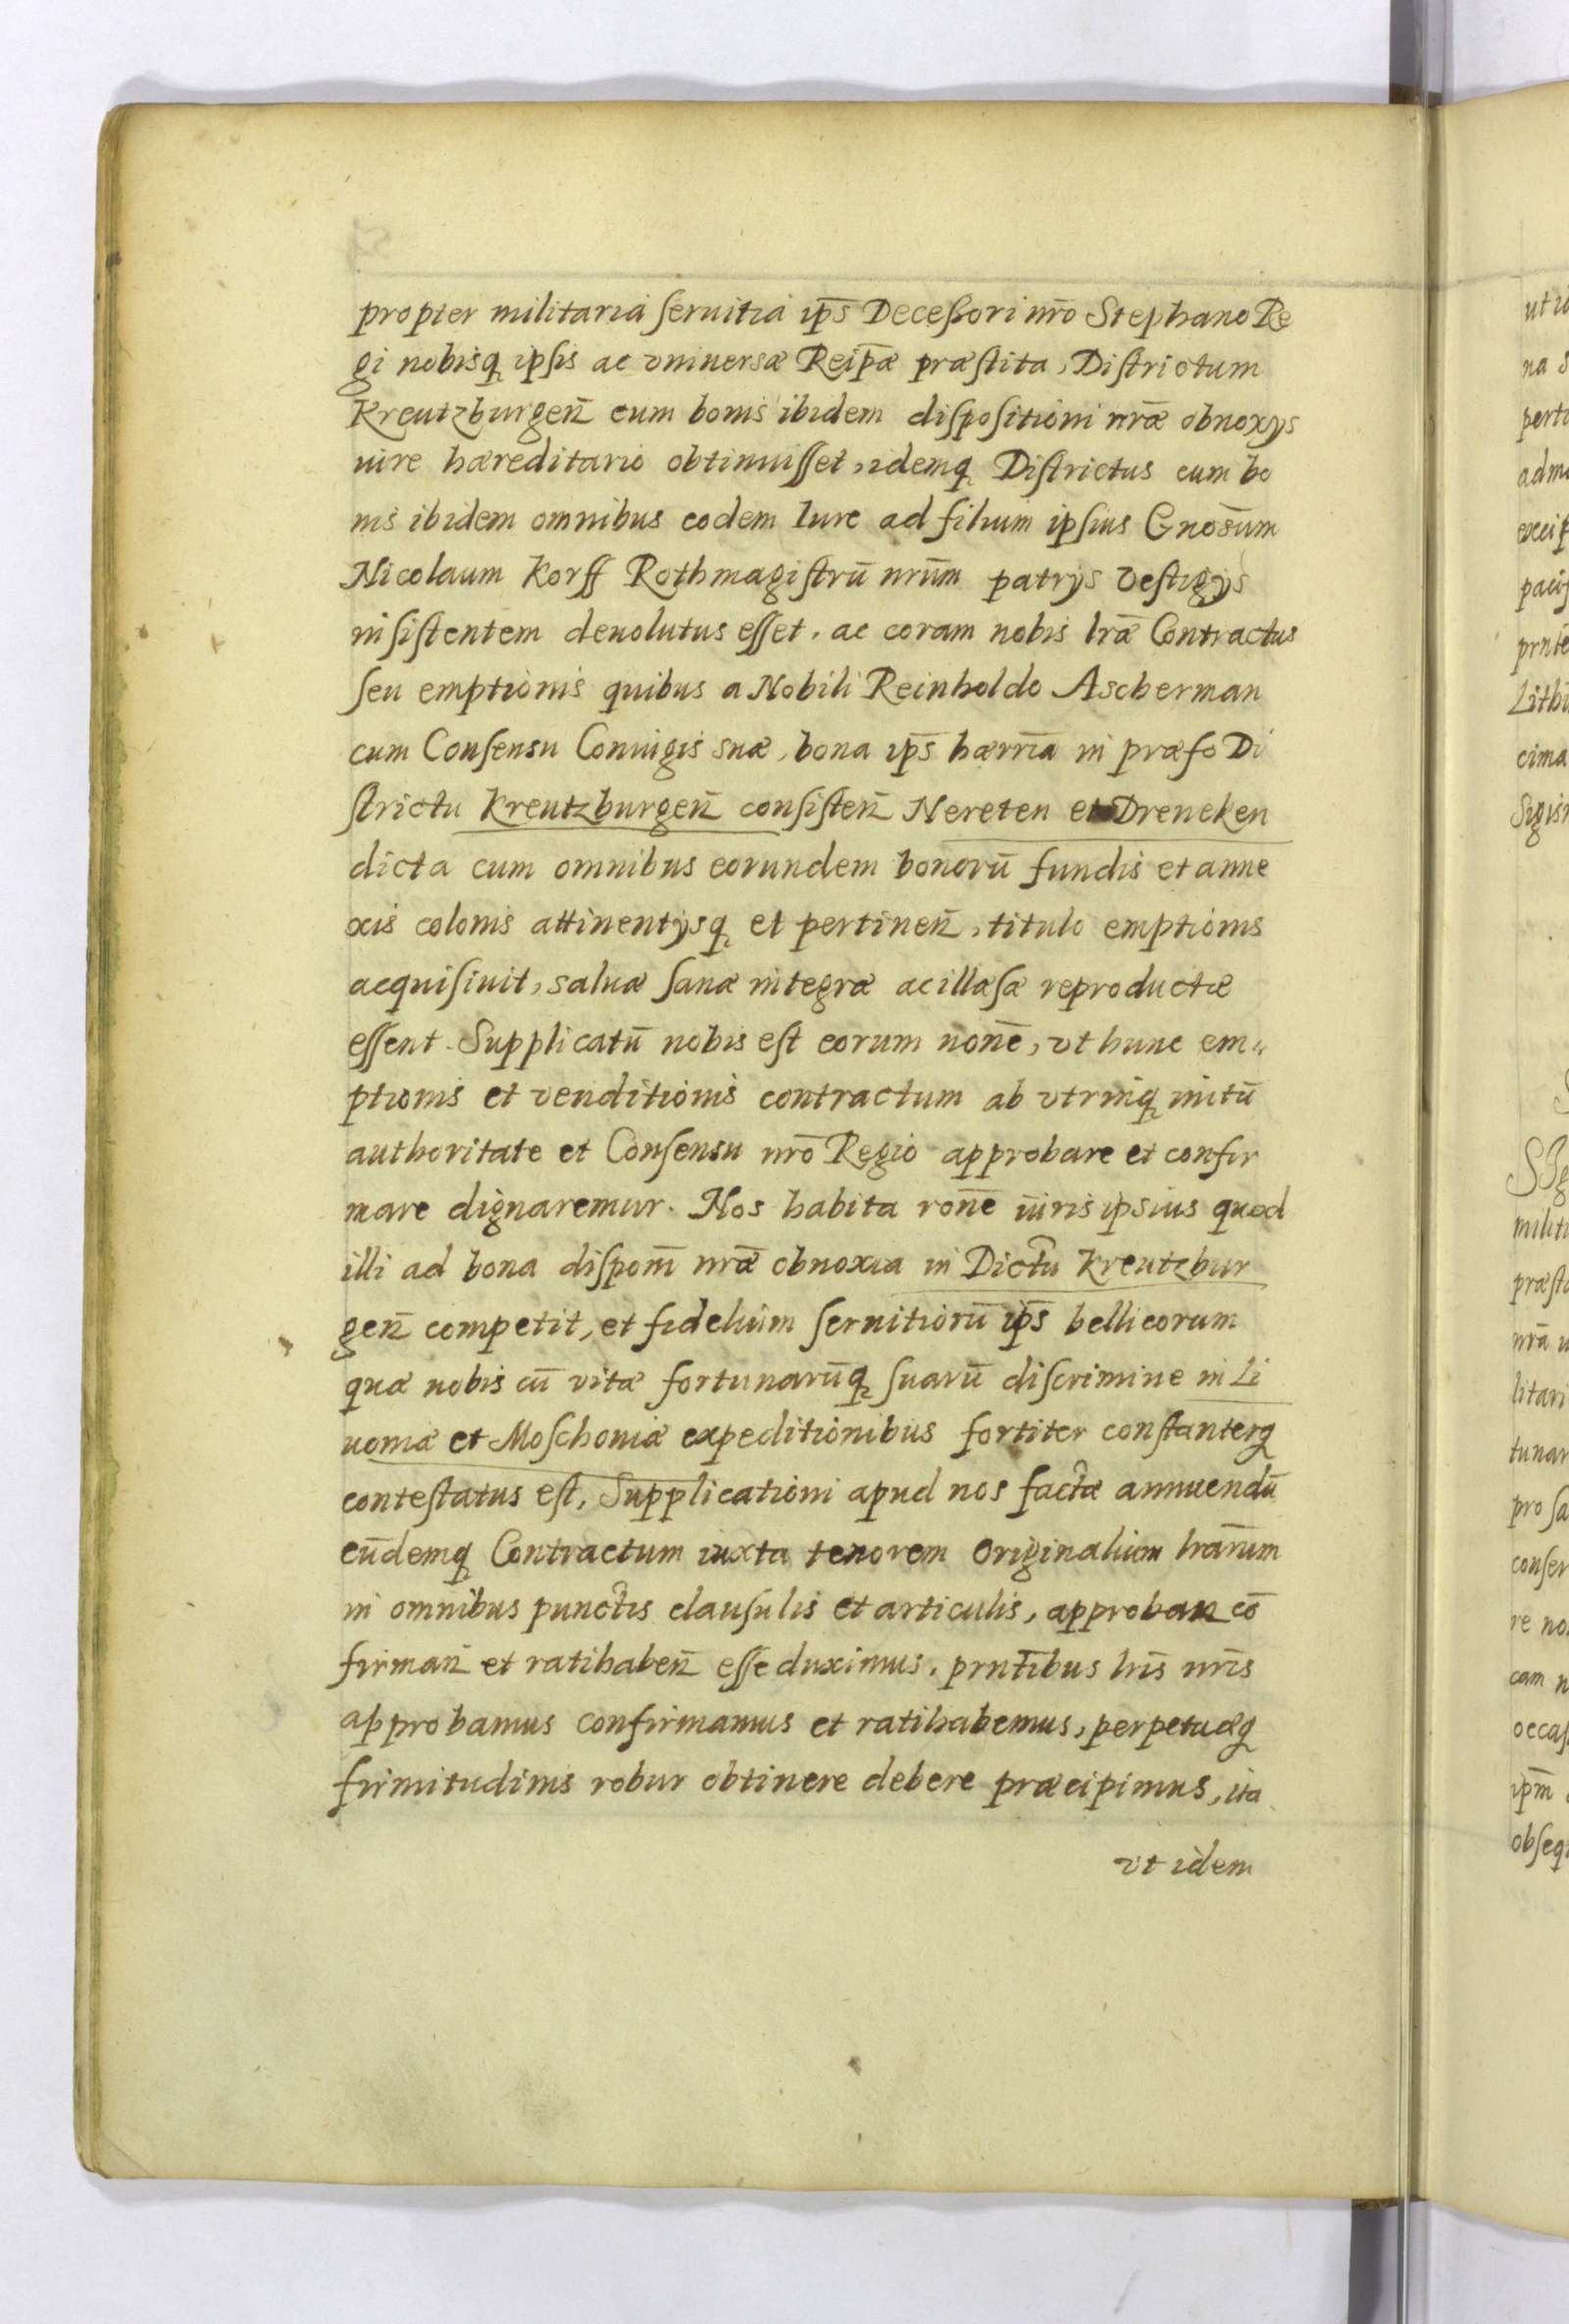 propter militaria ſeruitia ip̄s Deceſsori nr̄o Stephano Re
gi nobisq ipſis ac vniuersæ Reip̄æ præſtita, Diſtrictum
Kreutzburgen̄ cum bonis ibidem diſpoſitioni nr̄æ obnoxÿs
iure hæreditario obtinuiſſet, idemq Diſtrictus cum bo
nis ibidem omnibus eodem Iure ad filium ipſius Gnosūm
Nicolaum Korff Rothmagiſtrū nrūm patrÿs Veſtigÿs
inſiſtentem deuolutus eſſet, ac coram nobis lrǣ Contractus
ſeu emptionis quibus a Nobili Reinholdo Ascherman
cum Conſensu Coniugis suæ, bona ip̄s hærrīa in præfo Di
ſtrictu Kreutzburgen̄ conſiſten̄ Nereten et Dreneken
dicta cum omnibus eorundem bonorū fundis et anne
xis colonis attinentÿsq et pertinen̄, titulo emptionis
acquiſiuit, saluæ ſanæ integræ ac illæſæ reproductæ
eſſent. Supplicatū nobis eſt eorum nonē, vt hunc em„
ptionis et venditionis contractum ab vtrinq initū
authoritate et Conſensu nr̄o Regio approbare et confir
mare dignaremur. Nos habita ronē iuris ipsius quod
illi ad bona diſponi̅ nrǣ obnoxia in Dictu̅ Kreutzbur
gen̄ competit, et fidelium ſeruitiorū ip̄s bellicorum
quæ nobis cū vitæ fortunarūq ſuarū diſcrimine in Li
uoniæ et Moſchoniæ expeditionibus fortiter conſtanterq
conteſtatus eſt, Supplicationi apud nos factæ annuendū
eūdemq Contractum iuxta tenorem Originalium lrarūm
in omnibus punctis clauſulis et articulis, approban̄ cō
firman̄ et ratihaben̄ eſſe duximus, prntībus lrīs nrīs
approbamus confirmamus et ratihabemus, perpetuæq
firmitudinis robur obtinere debere præcipimus, ita
vt idem